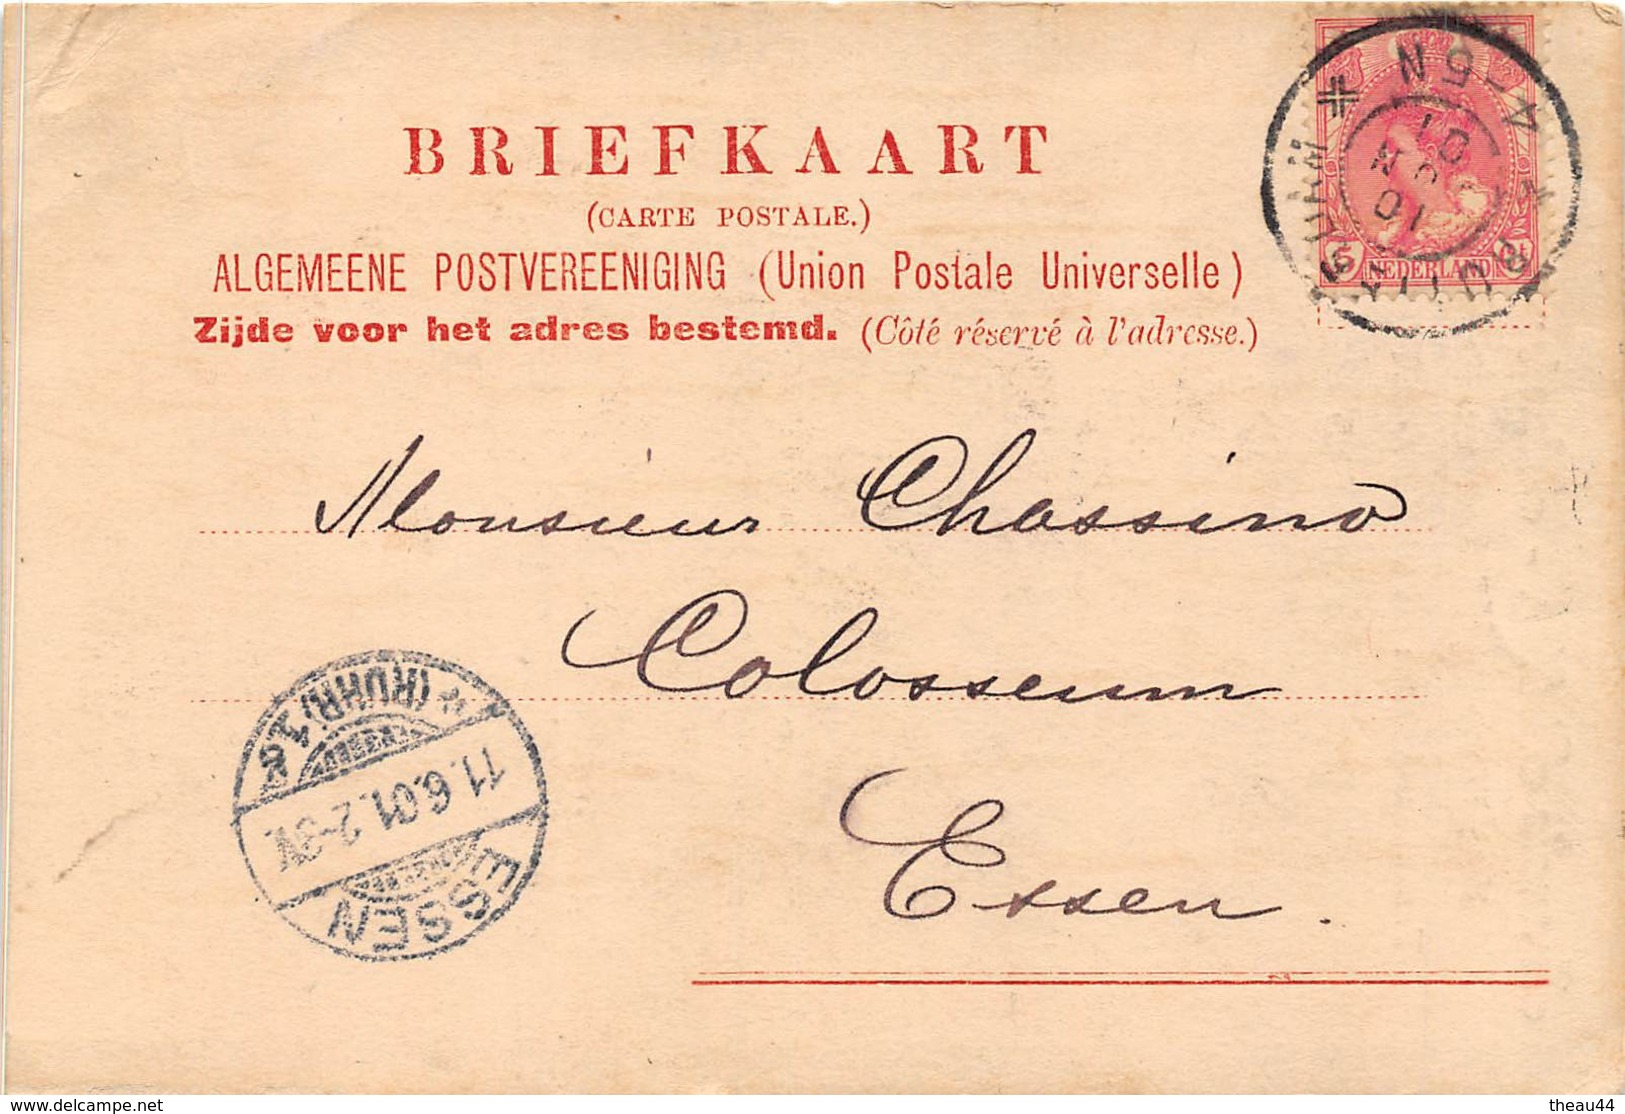 BRIEFKAART
(CARTE POSTALE.)
ALGEMEENE POSTVEREENIGING (Union Postale Universelle)
Zijde voor het adres bestemd. (Côté réservé à l'adresse.)
4-5N
10 JUN 01
5 NEDERLAND
Monsieur Chassino
Colosseum
Essen.
* (RUHR) 1 *
11.6.01. 2-3V.
ESSEN
www.delcampe.net
theau44